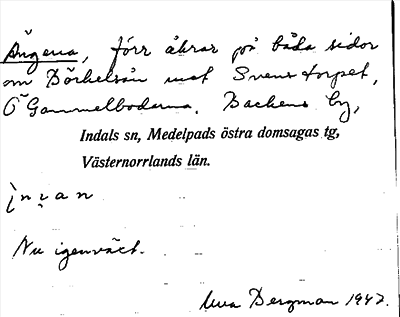 Ängena, förr åkrar på båda sidor
om Börkelsån mot Svenstorpet,
Ö Gammelbodarna. Backens by,
Indals sn, Medelpads östra domsagas tg,
Västernorrlands län.
Nu igenväxt.
Bergman 1947.